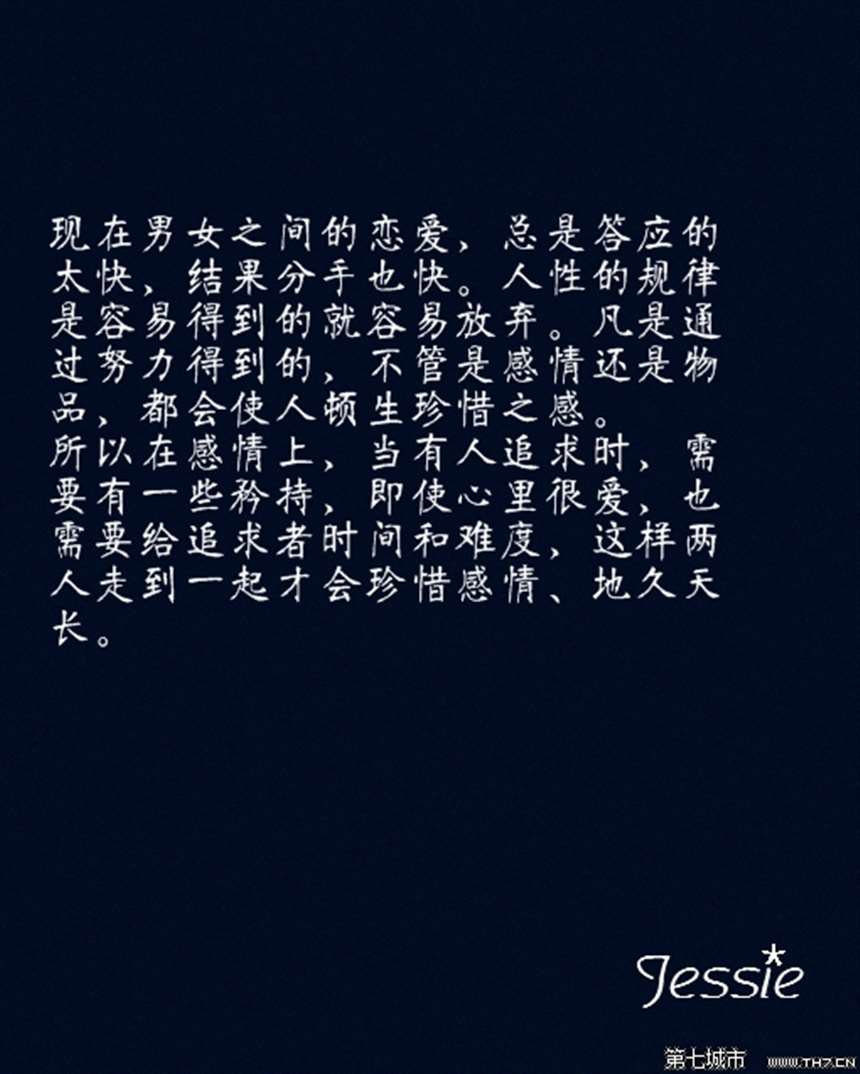 现在男女之间的恋爱，总是答应的
太快，结果分手也快。人性的规律
是容易得到的就容易放弃。凡是通
过努力得到的，不管是感情还是物
品，都会使人顿生珍惜之感。
所以在感情上，当有人追求时，需
要有一些矜持，即使心里很爱，也
需要给追求者时间和难度，这样两
人走到一起才会珍惜感情、地久天
长。
Jessie
第七城市 WWW.TH7.CN